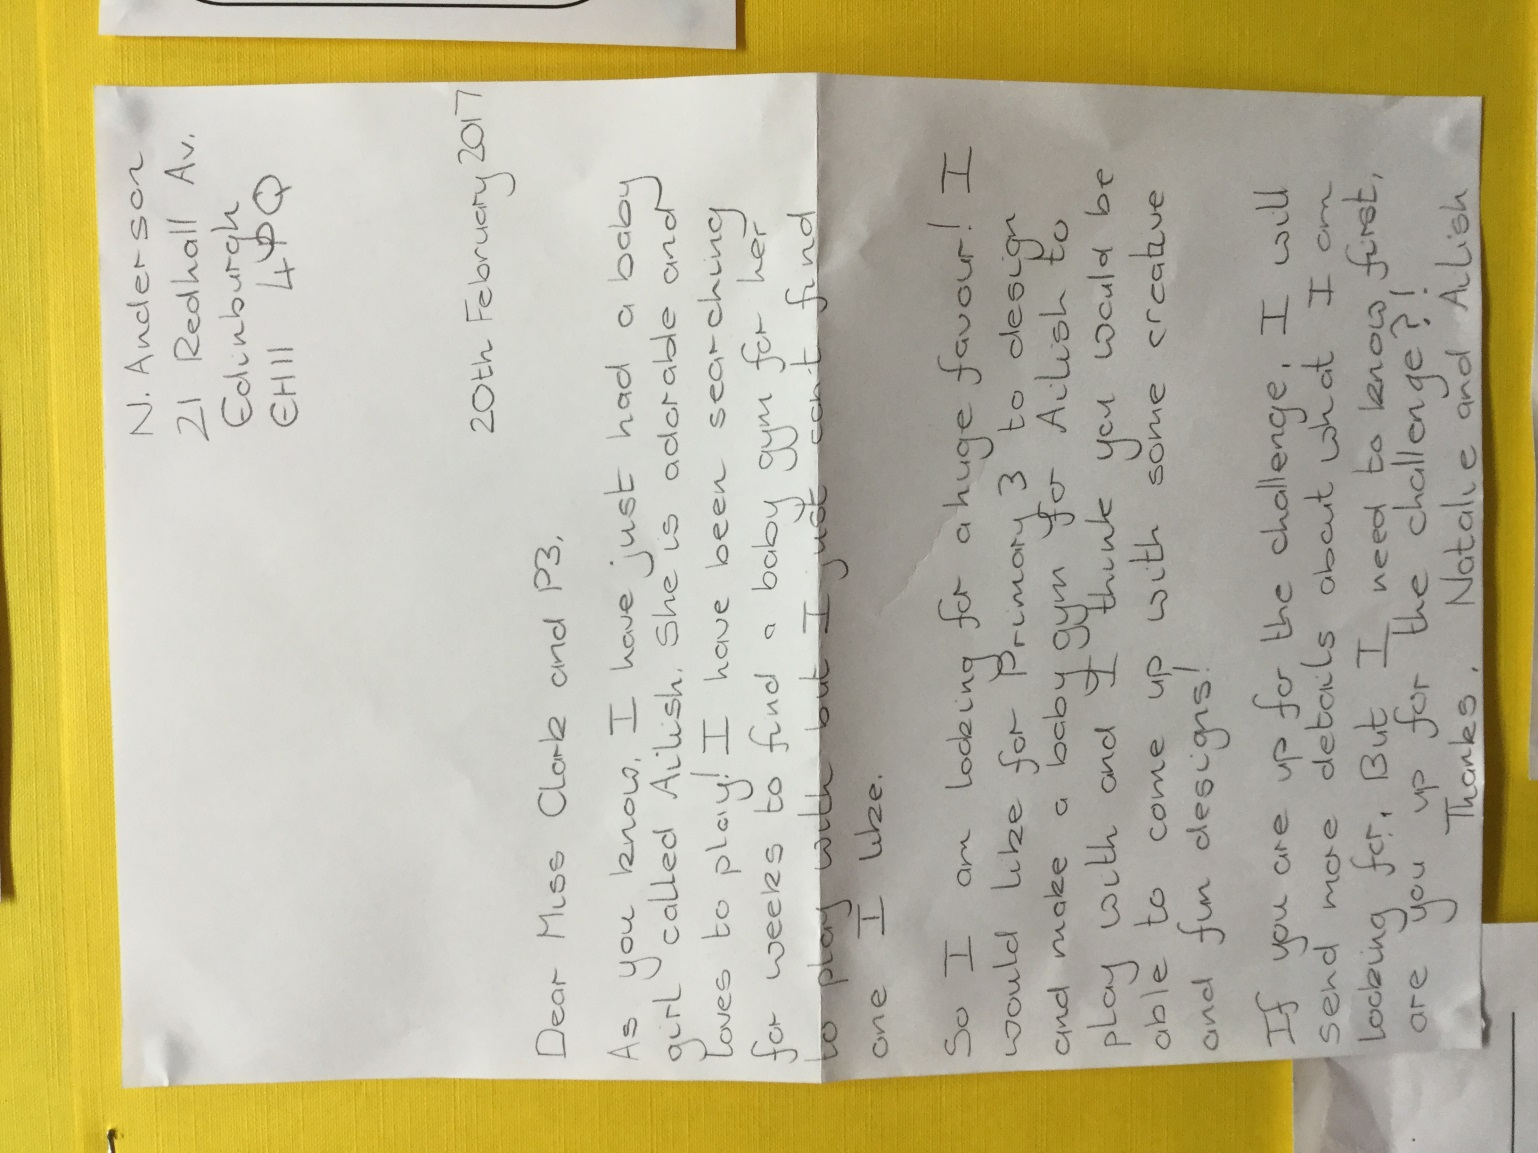 N. Anderson
21 Redhall Av.
Edinburgh
EH11 4PQ
20th February 2017
Dear Miss Clark and P3,
As you know, I have just had a baby
girl called Ailish. She is adorable and
loves to play! I have been searching
for weeks to find a baby gym for her
to play with but I just can't find
one I like.
So I am looking for a huge favour! I
would like for Primary 3 to design
and make a baby gym for Ailish to
play with and I think you would be
able to come up with some creative
and fun designs!
If you are up for the challenge, I will
send more details about what I am
looking for. But I need to know first,
are you up for the challenge?!
Thanks, Natalie and Ailish